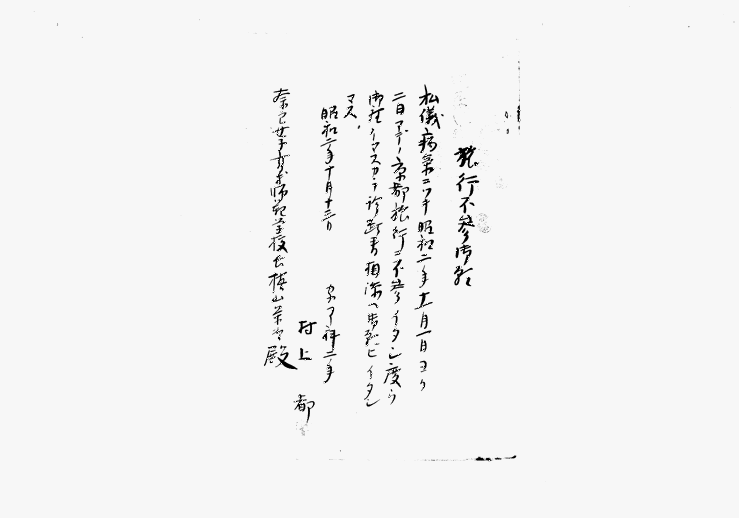 旅行不参御願
私儀病氣ニツキ昭和二年十一月一日ヨリ
二日マデノ京都旅行ニ不参イタシ度ク
御座イマスカラ診断書相添ヘ御願ヒイタシ
マス、
昭和二年十月十三日
第二年
村上 都
奈良女子高等師範学校長槇山栄次殿